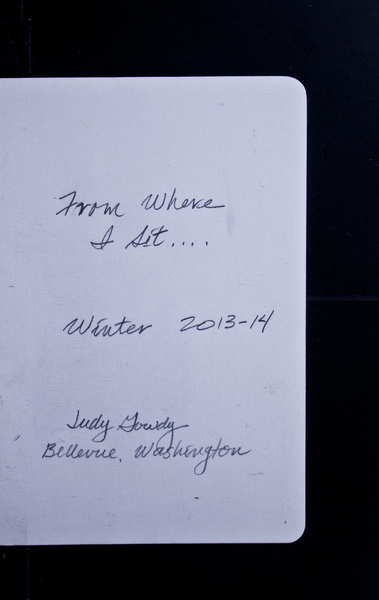 From Where
I Sit....
Winter 2013-14
Judy Gowdy
Bellevue, Washington